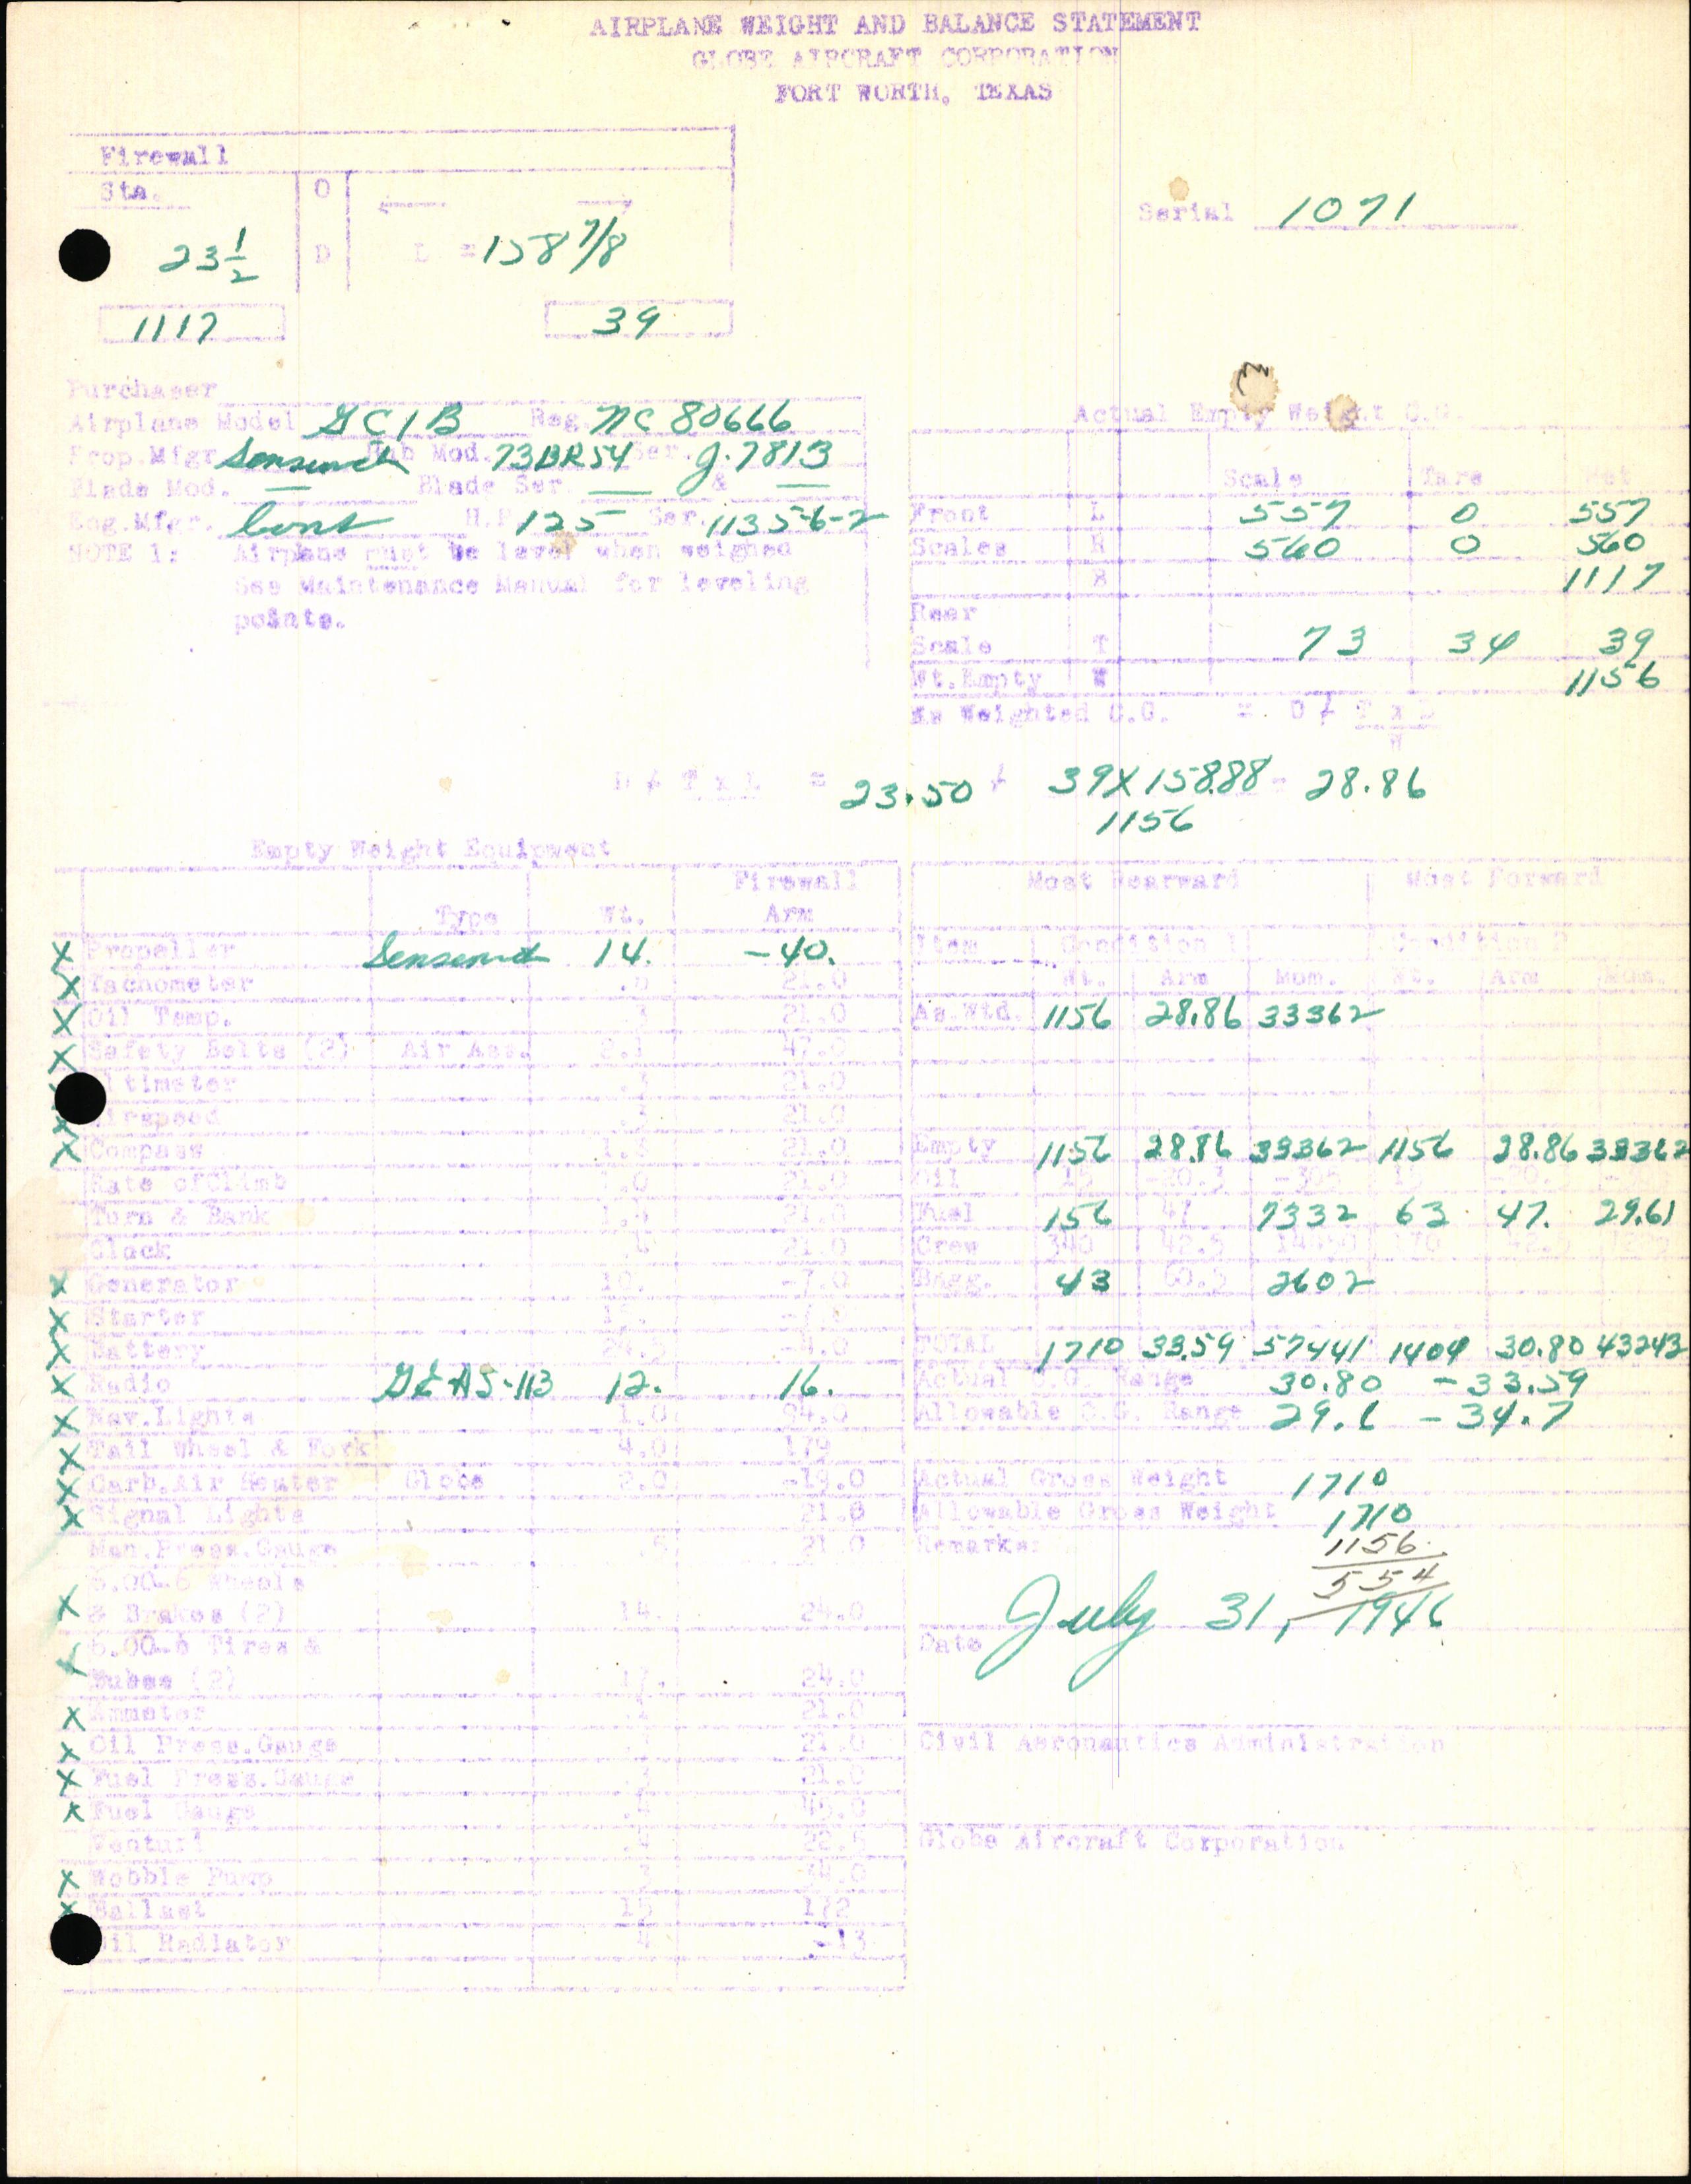 AIRPLANE WEIGHT AND BALANCE STATEMENT
GLOBE AIRCRAFT CORPORATION
FORT WORTH, TEXAS
Firewall
Sta. O
Serial 1071
23 1/2 D L = 158 7/8
1117 39
Purchaser
Airplane Model GC1B Reg. NC 80666
Actual Empty Weight C.G.
Prop.Mfgr. Hub Mod. 73BR54 Ser. J.7813
Blade Mod. — Blade Ser. — & —
Scale Tare Net
Eng.Mfgr. Cont H.P. 125 Ser. 1135-6-2
Front L 557 0 557
NOTE 1: Airplane must be level when weighed
Scales R 560 0 560
See Maintenance Manual for leveling
1117
points.
Rear
Scale T 73 34 39
Wt.Empty W 1156
As Weighted C.G. = D + T x L
W
D + T x L = 23.50 + 39X158.88 = 28.86
1156
Empty Weight Equipment
Type Wt. Firewall Arm
X Propeller 14. -40.
X Tachometer 21.0
X Oil Temp. 21.0
X Safety Belts (2) Air Ass. 2.1
Altimeter 21.0
X Airspeed 21.0
X Compass 21.0
Rate of Climb 21.0
Turn & Bank 21.0
Clock 21.0
X Generator 10. -7.0
X Starter
X Battery
X Radio GE AS-113 12. 16.
X Nav.Lights 1.0 94.0
X Tail Wheel & Fork 4.0 179
X Carb.Air Heater Globe 2.0
X Signal Lights
Man.Press.Gauge 21.0
6.00-6 Wheels
X & Brakes (2) 14. 24.0
6.00-6 Tires &
Tubes (2) 17. 24.0
X Ammeter 21.0
X Oil Press.Gauge 21.0
X Fuel Press.Gauge 21.0
X Fuel Gauge .4 45.0
Venturi 22.5
X Wobble Pump
X Ballast 15 172
Oil Radiator 4 -13
Most Rearward Most Forward
Item Condition Condition
Wt. Arm Mom. Wt. Arm Mom.
As Wtd. 1156 28.86 33362
Empty 1156 28.86 33362 1156 28.86 33362
Oil
Fuel 156 47. 7332 63 47. 29.61
Crew 340 42.5 170 42.5
Bagg. 43 60.5 2602
TOTAL 1710 33.59 57441 1404 30.80 43243
Actual C.G. Range 30.80 - 33.59
Allowable C.G. Range 29.6 - 34.7
Actual Gross Weight 1710
Allowable Gross Weight 1710
Remarks: 1156
554
Date July 31, 1946
Civil Aeronautics Administration
Globe Aircraft Corporation